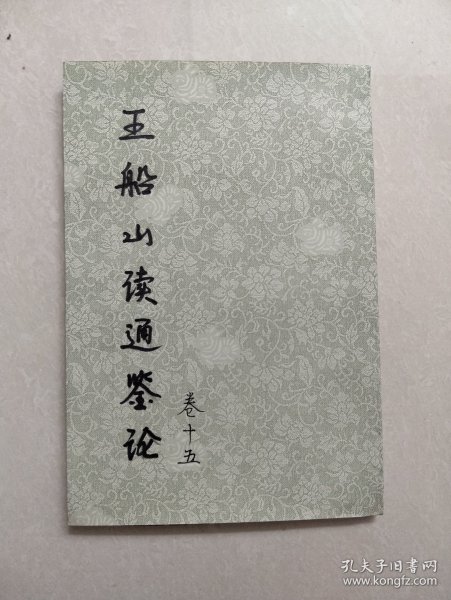 王船山读通鉴论
卷十五
孔夫子旧书网
www.kongfz.com